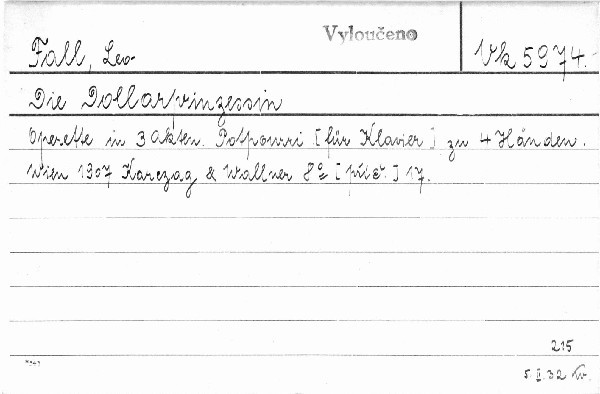 Vyloučeno
Fall, Leo
Vk 5974.-
Die Dollarprinzessin
Operette in 3 Akten. Potpourri [für Klavier] zu 4 Händen.
Wien 1907 Karczag & Wallner 8° [příč.] 17.
215
5 II 32